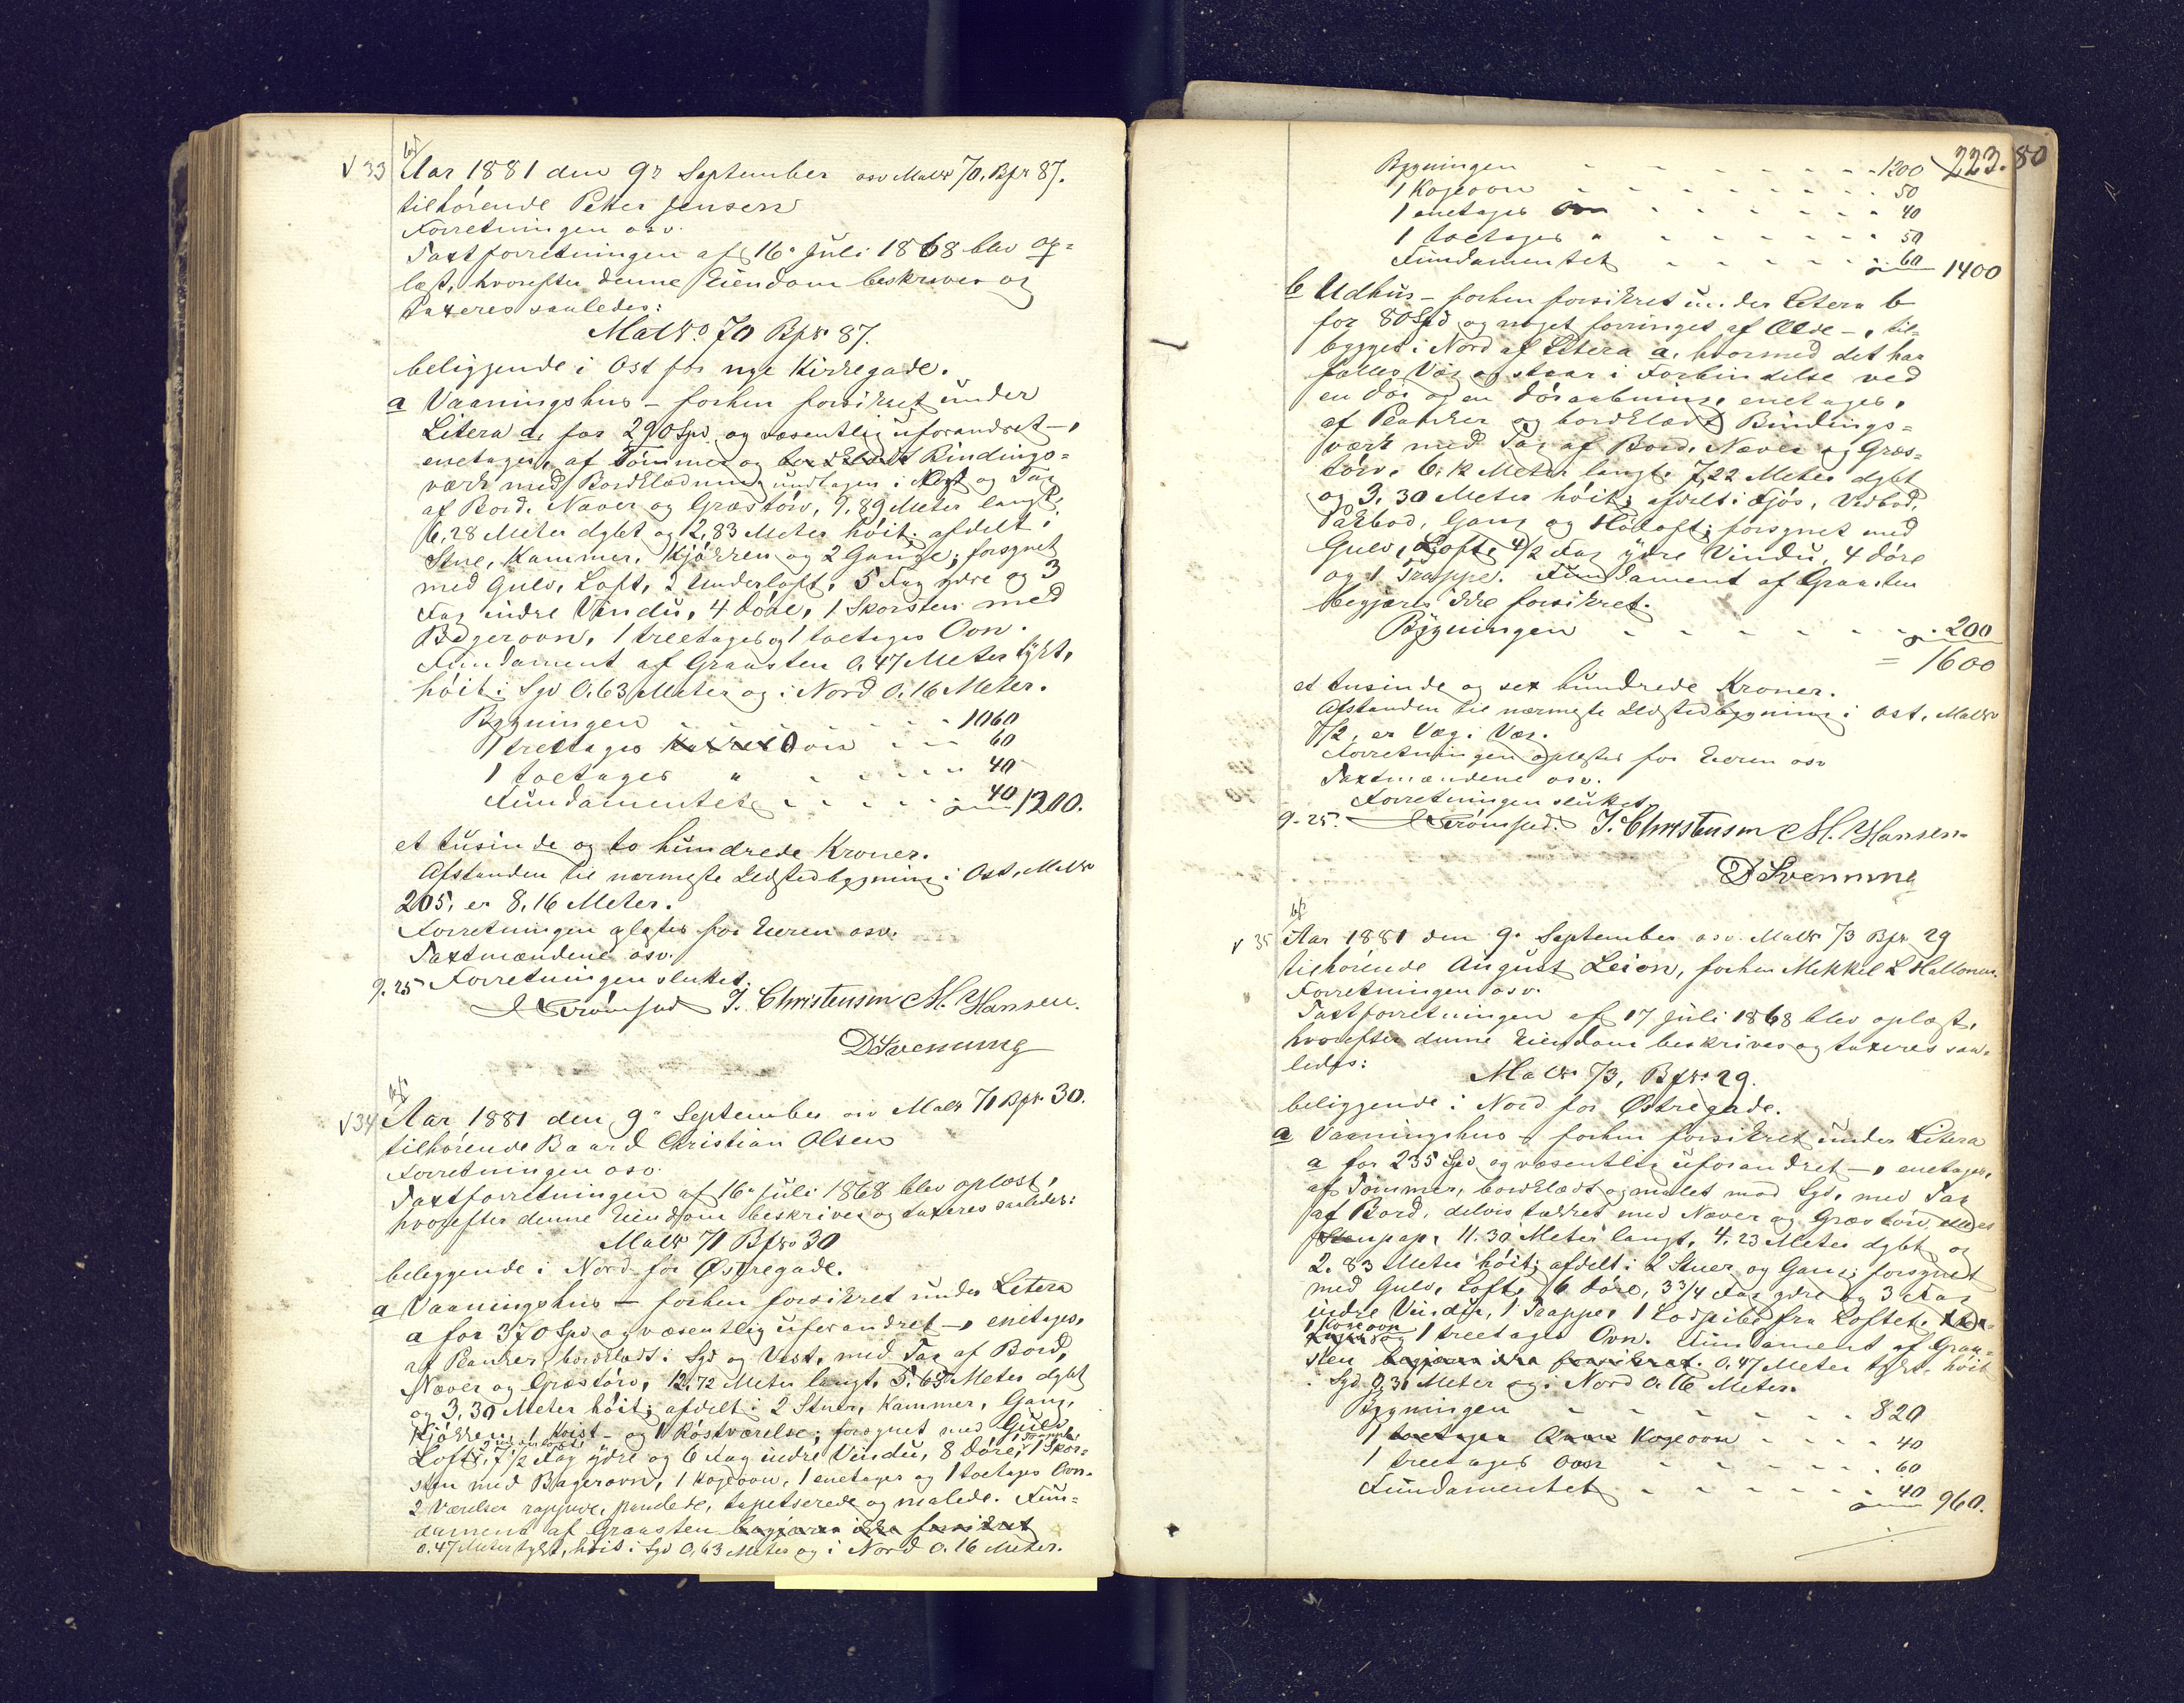 bf
√ 33 Aar 1881 den 9de September osv MatNo 70, BpNr 87.
tilhörende Peter Jensen
Forretningen osv.
Taxtforretningen af 16de Juli 1868 blev op=
læst, hvorefter denne Eiendom beskrives og
taxeres saaledes:
MatNo. 70 BpNr 87.
beliggende i Ost for nye Kirkegade.
a Vaaningshus – forhen forsikret under
Litera a, for 290 Spd og væsentlig uforandret –,
enetages, af Tömmer og bordklædt Bindings=
værk med Bordklædning undtagen i Ost og Tag
af Bord, Næver og Græstörv, 9,89 Meter langt,
6,28 Meter dybt og 2,83 Meter höit; afdelt i
Stue, Kammer, Kjökken og 2 Gange; forsynet
med Gulv, Loft, 2 Underloft, 5 Fag ydre og 3
Fag indre Vindu, 4 Döre, 1 Skorsten med
Bagerovn, 1 treetages og 1 toetages Ovn.
Fundament af Graasten 0,47 Meter tykt,
höit i Syd 0,63 Meter og i Nord 0,16 Meter.
Bygningen - - - - - - - 1060
1 treetages Ovn - - - 60
1 toetages " - - - - - 40
Fundamentet - - - - - 40 1200.
et tusinde og to hundrede Kroner.
Afstanden til nærmeste Ildstedbygning i Ost, MatNo
205, er 8,16 Meter.
Forretningen oplæstes for Eieren osv.
Taxtmændene osv.
9-25 Forretningen sluttet.
Strömsted J. Christensen M. Hansen.
D Svenning
bf
√ 34 Aar 1881 den 9de September osv MatNo 71 BpNr 30.
tilhörende Baard Christian Olsen
Forretningen osv.
Taxtforretningen af 16de Juli 1868 blev oplæst,
hvorefter denne Eiendom beskrives og taxeres saaledes:
MatNo 71 BpNo 30
beliggende i Nord for Østregade.
a Vaaningshus – forhen forsikret under Litera
a for 370 Spd og væsentlig uforandret –, enetages,
af Planker, bordklædt i Syd og Vest, med Tag af Bord,
Næver og Græstörv, 12,72 Meter langt, 5,65 Meter dybt
og 3,30 Meter höit; afdelt i 2 Stuer, Kammer, Gang,
Kjökken, 1 Kvist- og 1 Röstværelse; forsynet med Gulv,
Loft, 2 Underloft, 7 1/2 Fag ydre og 6 Fag indre Vindu, 8 Döre, 1 Trappe, 1 Skor=
sten med Bagerovn, 1 Kogeovn, 1 enetages og 1 toetages Ovn.
2 Værelser rappede, panelede, tapetserede og malede. Fun=
dament af Graasten begjæres ikke forsikret
0.47 Meter tykt, höit i Syd 0,63 Meter og i Nord 0.16 Meter.
223. 80
Bygningen - - - - - - - 1200
1 Kogeovn - - - - - - - 50
1 enetages Ovn - - - - - - 40
1 toetages " - - - - - - 50
Fundamentet - - - - - - 60 1400
b Udhus – forhen forsikret under Litera b
for 80 Spd og noget forringet af Ælde –, til=
bygget i Nord af Litera a, hvormed det har
fælles Væg og staar i Forbindelse ved
en Dör og en Döraabning, enetages,
af Planker og bordklædt Bindings=
værk med Tag af Bord, Næver og Græs=
törv, 6,12 Meter langt, 7,22 Meter dybt
og 3,30 Meter höit; afdelt i Fjös, Vedbod,
Pakbod, Gang og Höloft; forsynet med
Gulv, Loft, 4 1/2 Fag ydre Vindu, 4 Döre
og 1 Trappe. Fundament af Graasten
begjæres ikke forsikret.
Bygningen - - - - - - - 200
= 1600
et tusinde og sex hundrede Kroner.
Afstanden til nærmeste Ildstedbygning i Ost, MatNo
72, er Væg i Væg.
Forretningen oplæstes for Eieren osv
Taxtmændene osv.
Forretningen sluttet.
9-25. Strömsted. J. Christensen M. Hansen.
D Svenning
bf
√ 35 Aar 1881 den 9de September osv. MatNo 73 BpNr 29
tilhörende August Leion, forhen Mekkel L Hallonen.
Forretningen osv.
Taxtforretningen af 17 Juli 1868 blev oplæst,
hvorefter denne Eiendom beskrives og taxeres saa=
ledes:
MatNo. 73, BpNo. 29.
beliggende i Nord for Østregade.
a Vaaningshus – forhen forsikret under Litera
a for 235 Spd og væsentlig uforandret –, enetages,
af Tömmer, bordklædt og malet mod Syd, med Tag
af Bord, delvis tækket med Næver og Græstörv, dels
Stenpap, 11,30 Meter langt, 4,23 Meter dybt og
2,83 Meter höit; afdelt i 2 Stuer og Gang; forsynet
med Gulv, Loft, 6 Döre, 3 3/4 Fag ydre og 3 Fag
indre Vindu, 1 Trappe, 1 Lodpibe fra Loftet,
1 Kogeovn og 1 treetages Ovn. Fundament af Graa=
sten begjæres ikke forsikret. 0,47 Meter tykt, höit
i Syd 0,31 Meter og i Nord 0.16 Meter.
Bygningen - - - - - - - 820
1 toetages Ovn Kogeovn - - - - 40
1 treetages Ovn - - - - - 60
Fundamentet - - - - - - 40 960.